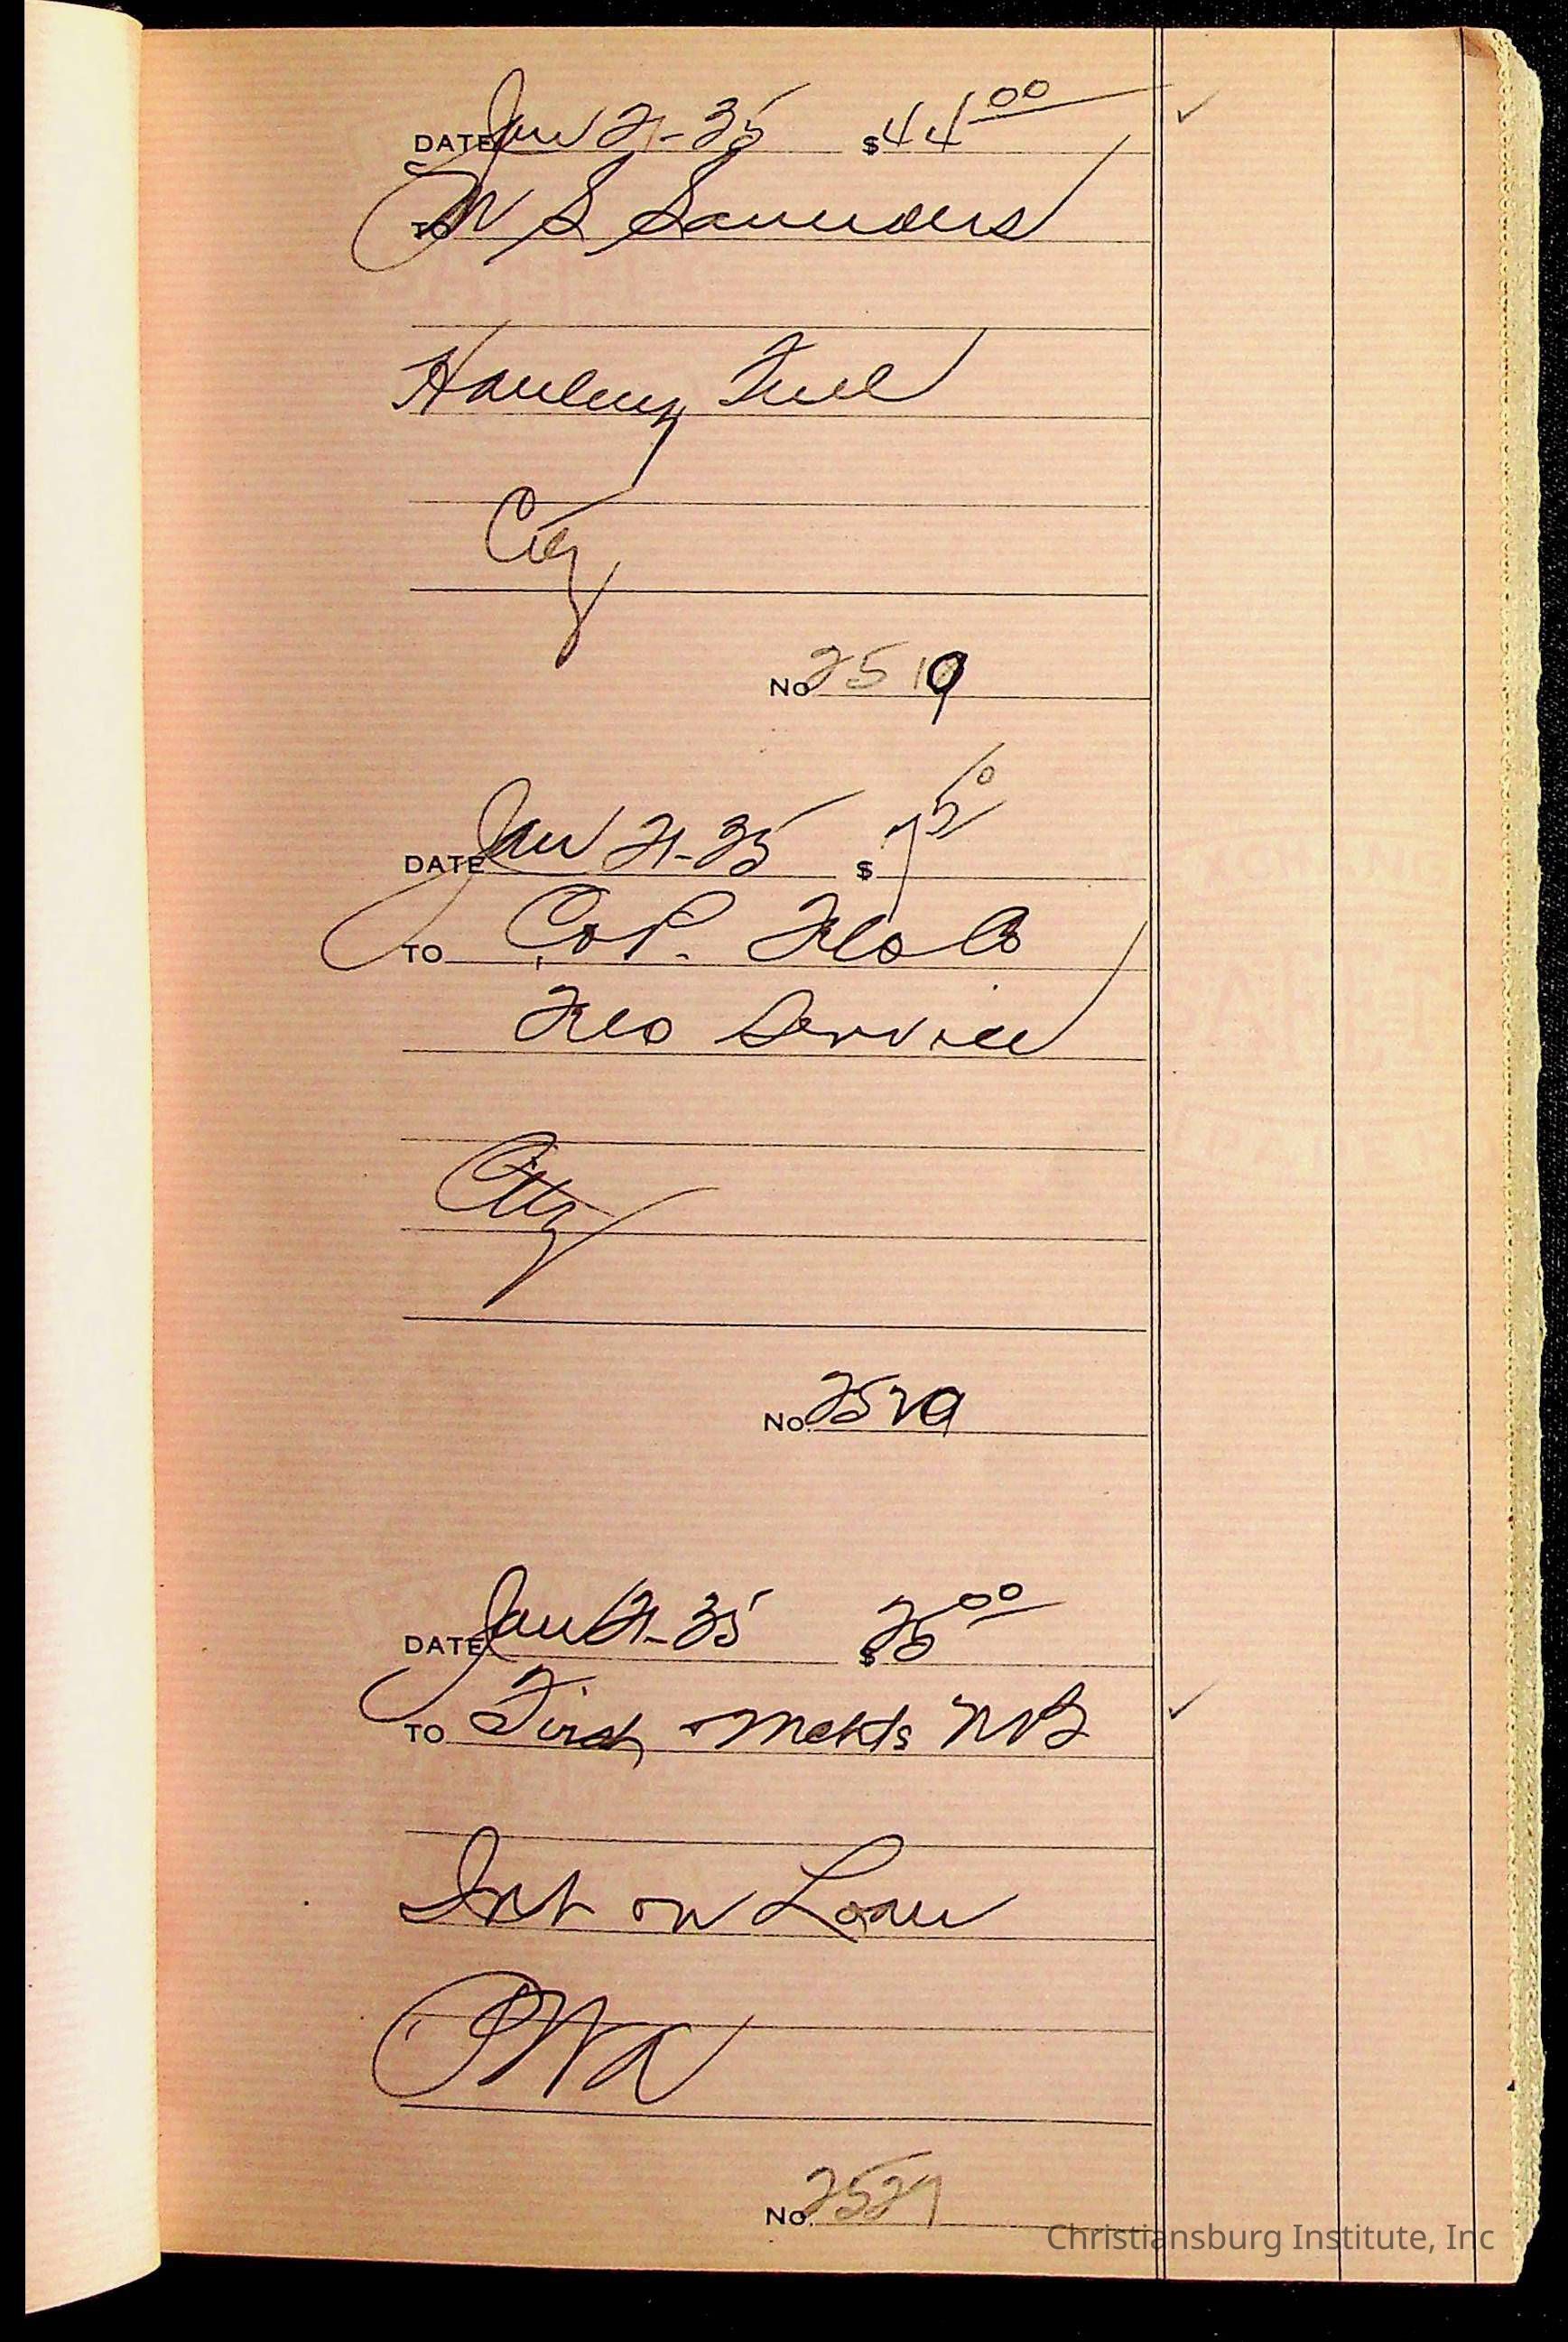 DATE Jan 21-35 $44 00
TO W S Saunders
Hauling Fuel
City
No 2519
DATE Jan 21-35 $7 50
TO C & P. Tele Co
Tele Service
City
No. 2520
DATE Jan 21-35 $25 00
TO First Mchts NB
Int on Loan
No. 2521
Christiansburg Institute, Inc